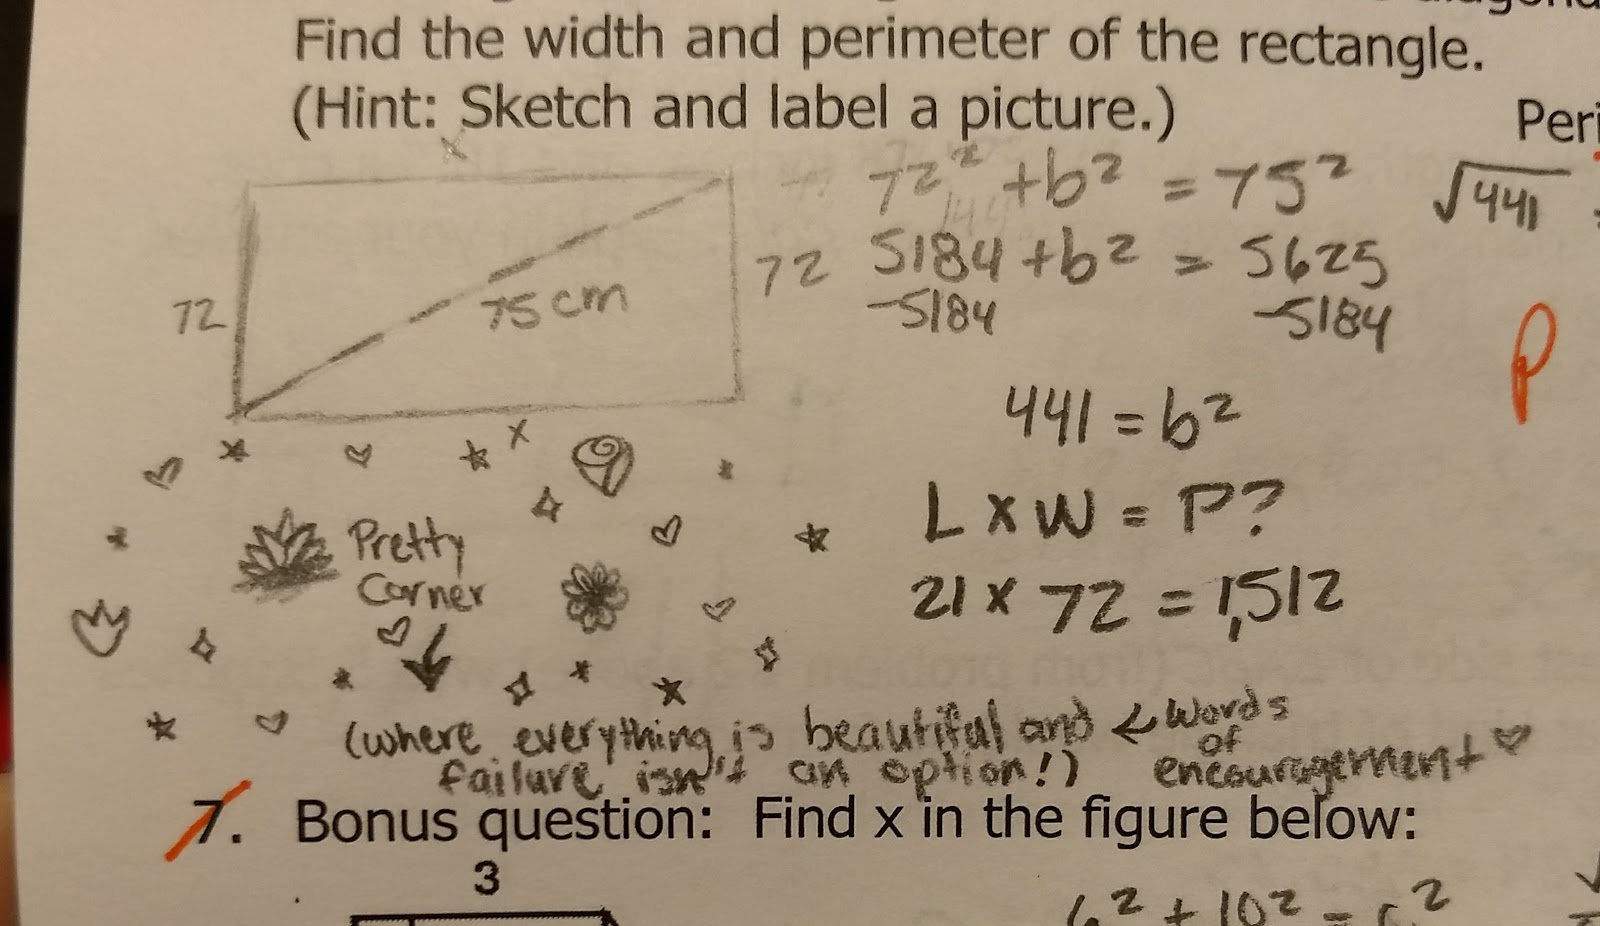 Find the width and perimeter of the rectangle.
(Hint: Sketch and label a picture.)
Peri
x
72
75 cm
72
x
72² + b² = 75²
√441
5184 + b² = 5625
-5184 -5184
441 = b²
P
L x W = P?
21 x 72 = 1,512
Pretty
Corner
(where everything is beautiful and ← Words
of
failure isn't an option!) encouragement
7. Bonus question: Find x in the figure below:
3
6² + 10² = c²